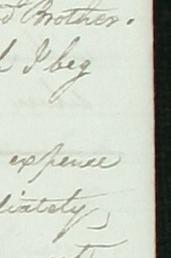 d Brother.
I beg
expence
diately,